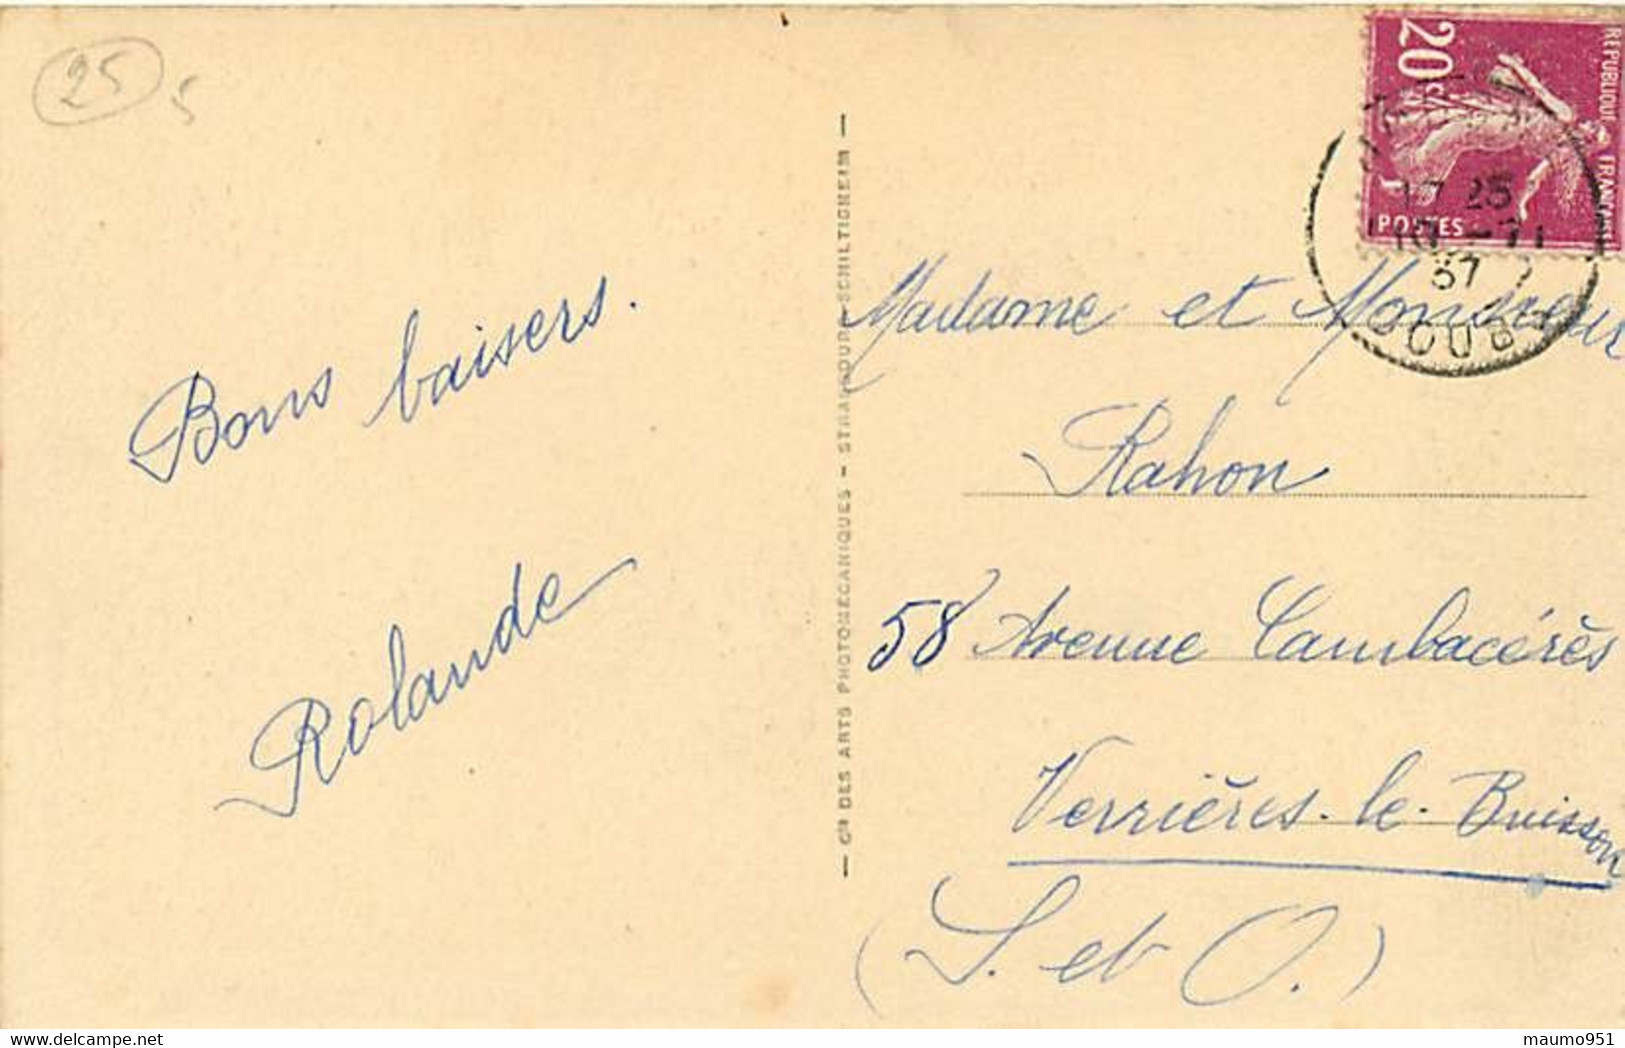 25
5
Bons baisers.
Rolande
— Cie DES ARTS PHOTOMÉCANIQUES - STRASBOURG-SCHILTIGHEIM —
20c
REPUBLIQUE FRANCAISE
POSTES
17 25
37
DOUBS
Madame et Monsieur
Rahon
58 Avenue Cambacérès
Verrières-le-Buisson
(S. et O.)
maumo951